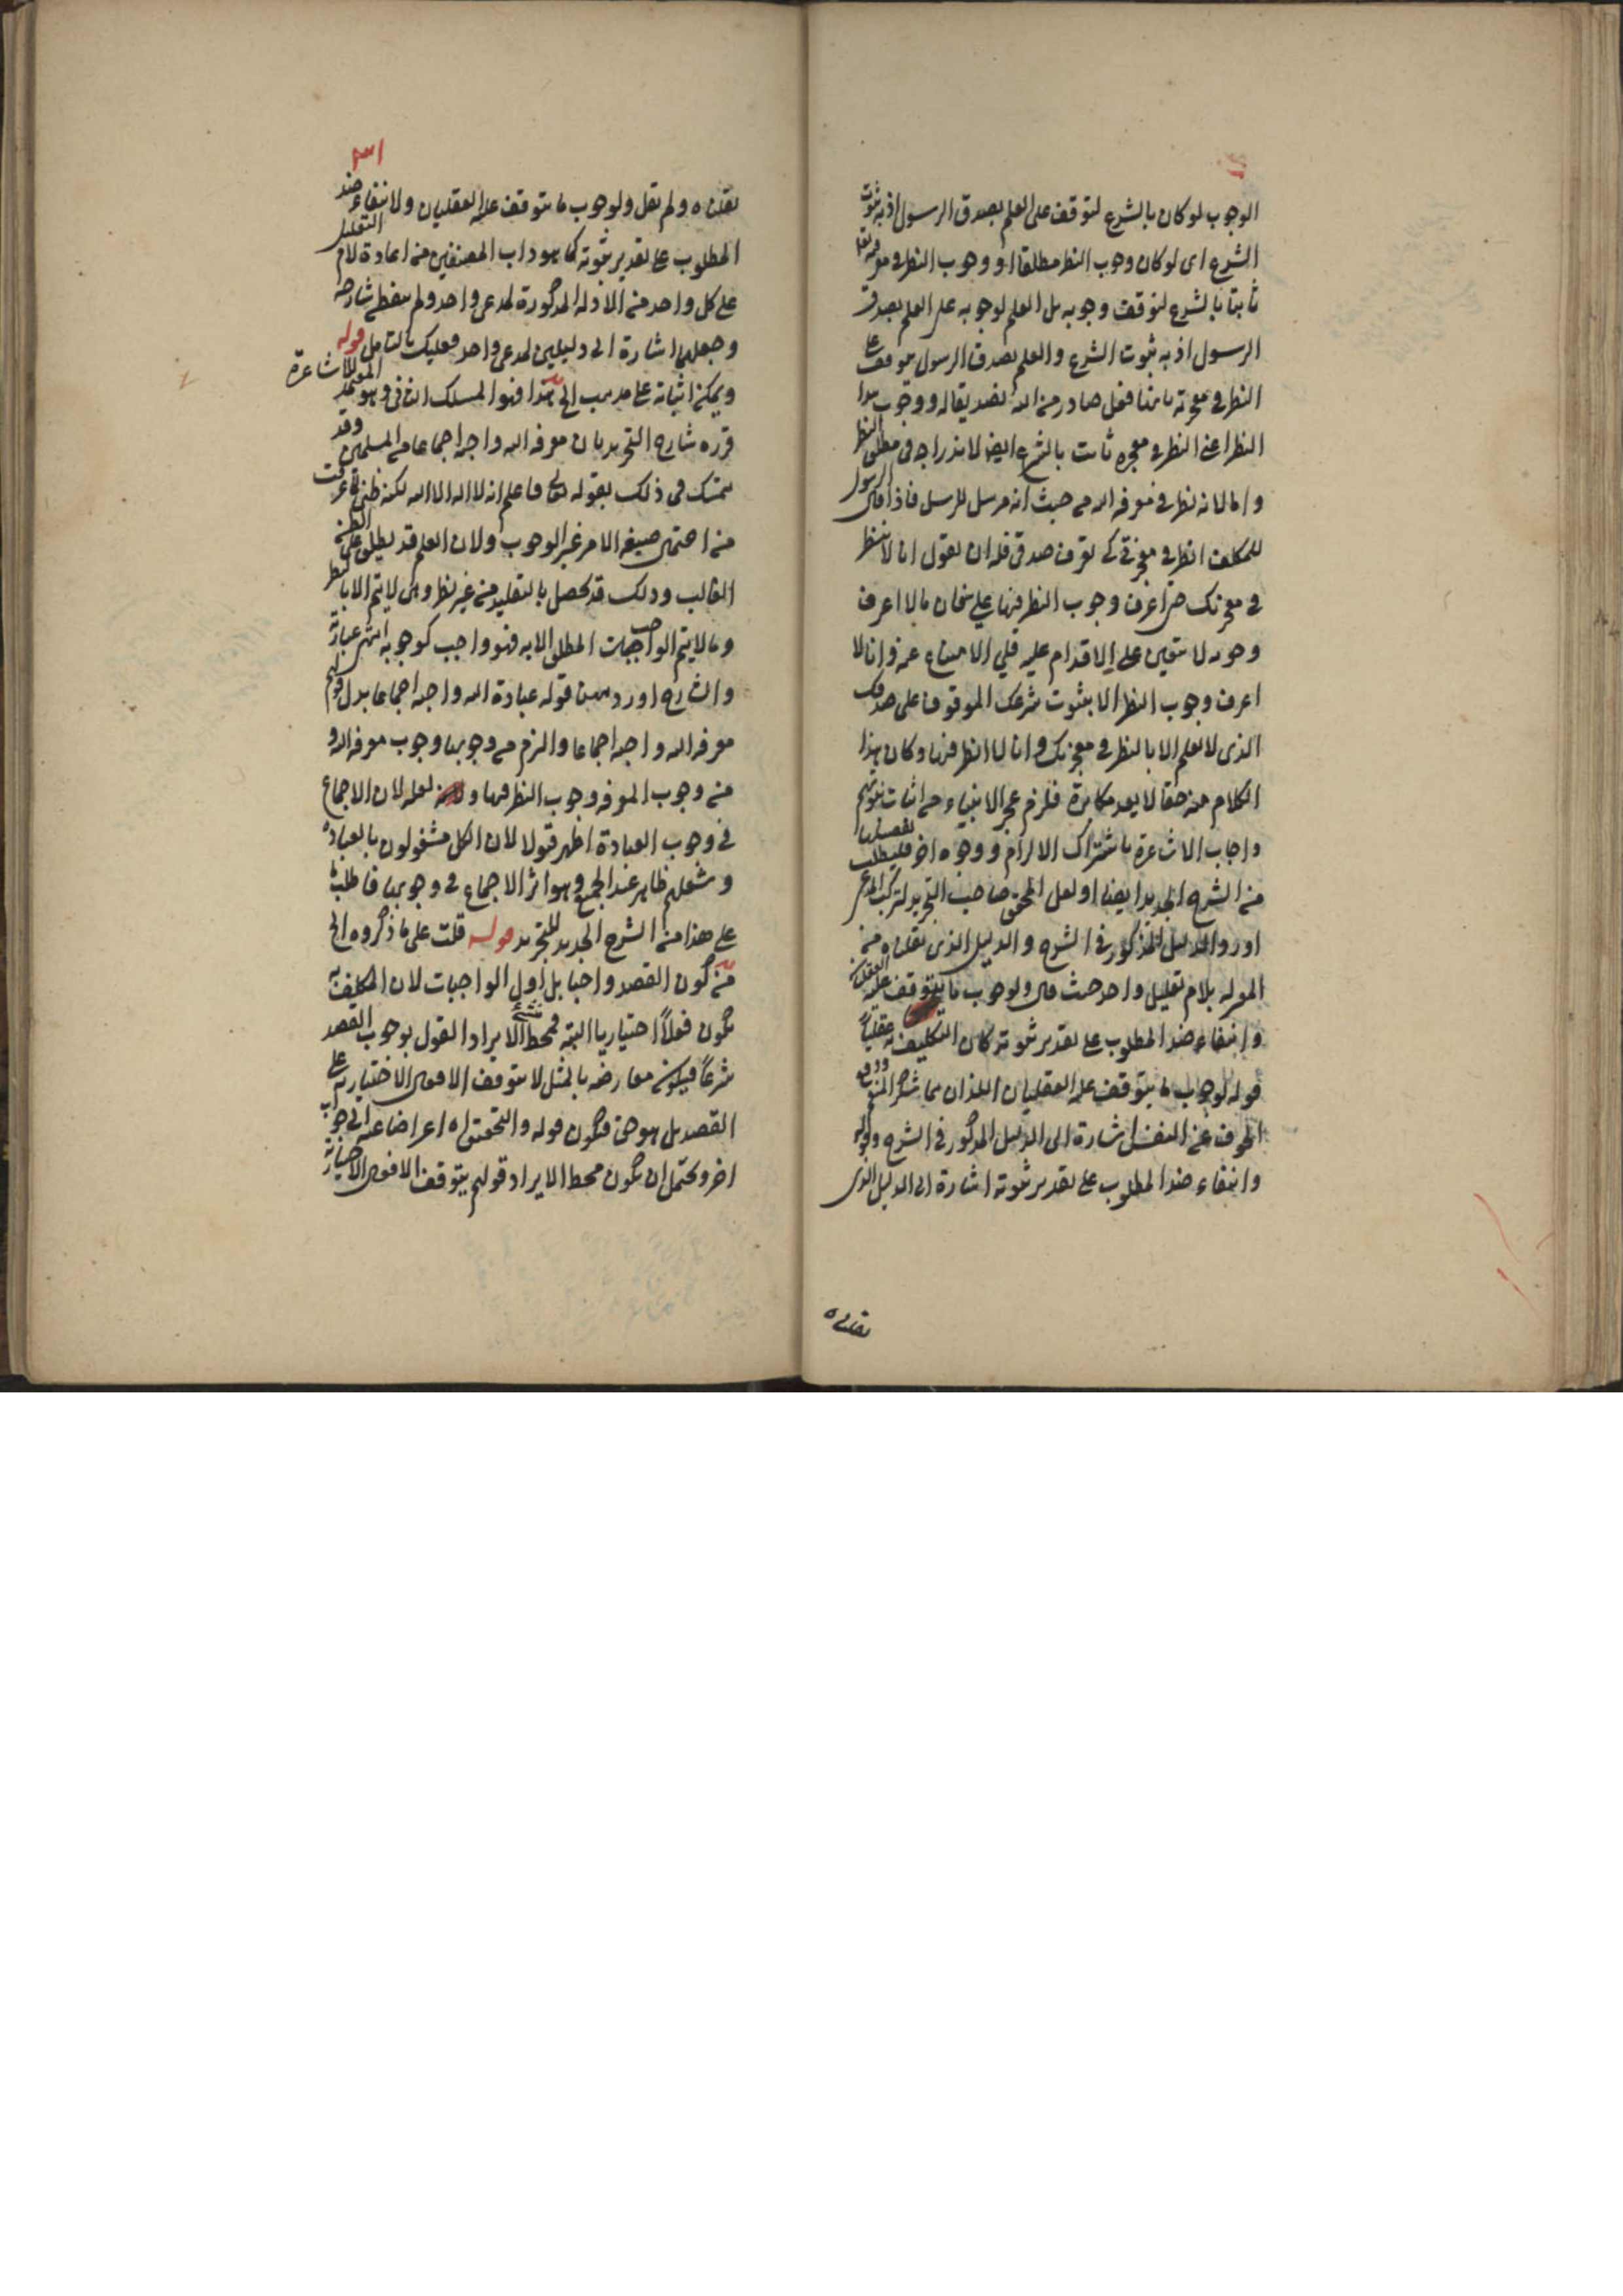 الوجوب لو كان بالشرع لتوقف على العلم بصدق الرسول اذ به ثبوت
الشرع اى لو كان وجوب النظر مطلقا او وجوب النظر فى معرفته تعا
ثابتا بالشرع لتوقف وجوبه بل العلم لوجوبه على العلم بصدق
الرسول اذ به ثبوت الشرع والعلم بصدق الرسول موقف على
النظر فى معجزته بانها فعل صادر من الله تصديقا له ووجوب هذا
النظر اعنى النظر فى معجزه ثابت بالشرع ايضا لاندراجه فى مطلق النظر
واما لانه نظر فى معرفة الله من حيث انه مرسل للرسل فاذا قال الرسول
للمكلف انظر فى معجزتى كى تعرف صدقى فله ان يقول انا لا انظر
فى معجزتك حتى اعرف وجوب النظر فيها على فان ما لا اعرف
وجوبه لا يتعين على الاقدام عليه فلى الامتناع عنه وانا لا
اعرف وجوب النظر الا بثبوت شرعك الموقوف على صدقك
الذى لا يعلم الا بالنظر فى معجزتك وانا لا انظر فيها وكان هذا
الكلام منه حقا لا يعد مكابرة فلزم عجز الانبياء عن اثبات نبوتهم
واجاب الاشاعرة باشتراك الالزام ووجوه اخر فليطلب تفصيلها
من الشرح الجديد ايضا ولعل المحقق صاحب التجريد لتركب المدعى
اورد الدليل المذكور فى الشرح والدليل الذى نقلناه من
المعتزله بلام تعليل واحد حيث قال ولوجوب ما يتوقف عليه العقليان
وانتفاء ضد المطلوب على تقدير ثبوته كان التكليف به عقليا
فقوله لوجوب ما يتوقف عليه العقليان اللذان هما شكر المنعم ودفع
الخوف عن النفس اشارة الى الدليل المذكور فى الشرح وقوله
وانتفاء ضد المطلوب على تقدير ثبوته اشارة الى الدليل الذى
نقلناه
٣١
نقلناه ولم يقل ولوجوب ما يتوقف عليه العقليان ولانتفاء ضد
المطلوب على تقدير ثبوته كما هو داب المصنفين من اعادة لام التعليل
على كل واحد من الادلة المذكورة لمدعى واحد ولم يتفطن شارحه
وجعلها اشارة الى دليلين لمدعى واحد فعليك بالتامل قوله
ويمكن اثباته على مذهب فهو المسلك الثانى وهو المعتمد للاشاعرة
قرره شارح التجريد بان معرفة الله واجبة اجماعا من المسلمين وقد
يتمسك فى ذلك بقوله تعالى فاعلم انه لا اله الا الله لكنه ظنى لما عرفت
من احتمال صيغة الامر غير الوجوب ولان العلم قد يطلق على الظن
الغالب وذلك قد يحصل بالتقليد من غير نظر وهى لا يتم الا بالنظر
وما لا يتم الواجبات المطلق الا به فهو واجب كوجوبه انتهى عبارته
والشارح اورد ههنا قوله عبادة الله واجبة اجماعا بدل قولهم
معرفة الله واجبة اجماعا والزم من وجوبها وجوب معرفة الله و
من وجوب المعرفة وجوب النظر فيها و لعله لان الاجماع
فى وجوب العبادة اظهر قبولا لان الكل مشغولون بالعبادة
وشغلهم ظاهر عند الجميع وهو اثر الاجماع فى وجوبها فاطلب
على هذا من الشرح الجديد للتجريد قوله قلت على ما ذكروه الخ
من كون القصد واجبا بل اول الواجبات لان المكلف به
يكون فعلا اختياريا البتة فمحط الايراد القول بوجوب القصد
شرعا فيكون معارضه بالمثل لا يتوقف الافعال الاختياريه على
القصد بل هو حق فيكون قوله والتحقيق اه اعراضا عنه الى جواب
اخر ويحتمل ان يكون محط الايراد قولهم يتوقف الافعال الاختيارية